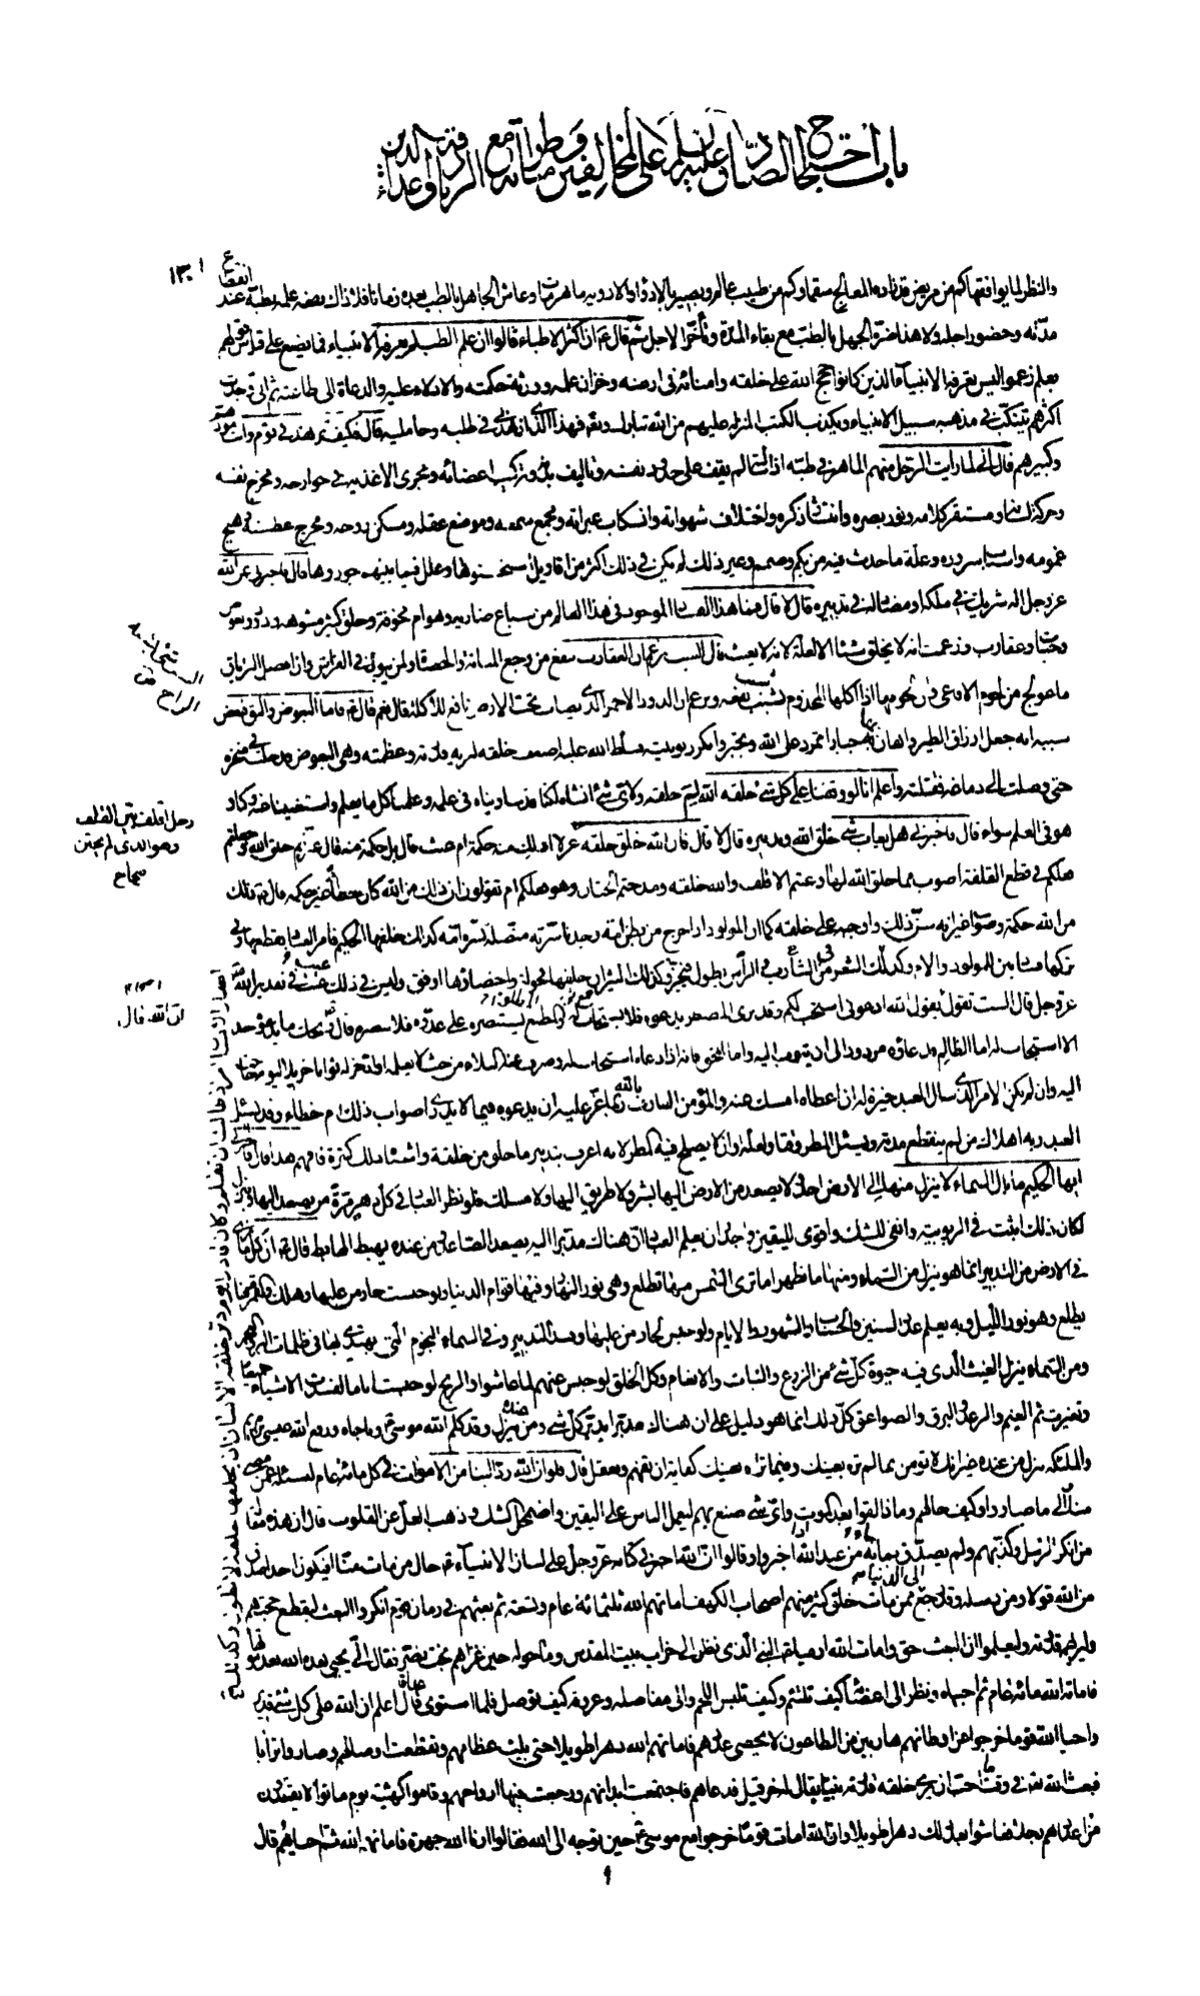 باب احتجاج الصادق عليه السلم على المخالفين ومناظراته مع الزنادقة اعداء الدين
والنظر لما يوافقها كم من مريض قد زاده المعالج سقما وكم من طبيب عالم وبصير بالادواء والادوية ماهر مات وعاش الجاهل بالطب بعده زمانا فلا ذاك نفعه علمه بطبه عند انقضاء
مدته وحضور اجله ولا هذا ضره الجهل بالطب مع بقاء المدة وتأخر الاجل ثم قال ع ان اكثر الاطباء قالوا ان علم الطب لم يعرفه الانبياء فما يصنع على قياس قولهم
بعلم زعموا ليس يعرفه الانبياء الذين كانوا حجج الله على خلقه وامنائه في ارضه وخزان علمه وورثة حكمته والادلاء عليه والدعاة الى طاعته ثم اني وجدت
اكثرهم يتنكب في مذهبه سبيل الانبياء ويكذب الكتب المنزلة عليهم من الله تبارك وتعه فهذا الذي ازهدني في طلبه وحامليه قال فكيف تزهد في قوم وانت مؤدبهم
وكبيرهم قال اني لما رايت الرجل منهم الماهر في طبه اذا سالته لم يقف على حدود نفسه وتاليف بدنه وتركيب اعضائه ومجرى الاغذية في جوارحه ومخرج نفسه
وحركة لسانه ومستقر كلامه ونور بصره وانتشار ذكره واختلاف شهواته وانسكاب عبراته ومجمع سمعه وموضع عقله ومسكن روحه ومخرج عطسته وهيج
غمومه واسباب سروره وعلة ما حدث فيه من بكم وصمم وغير ذلك لم يكن في ذلك اكثر من اقاويل استحسنوها وعلل فيما بينهم جوزوها قال فاخبرني عن الله
عز وجل اله شريك في ملكه او مضاد له في تدبيره قال لا قال فما هذا الفساد الموجود في هذا العالم من سباع ضارية وهوام مخوفة وخلق كثير مشوهة ودود وبعوض
وحيات وعقارب وزعمت انه لا يخلق شيئا الا لعلة لانه لا يعبث قال الست تزعم ان العقارب تنفع من وجع المثانة والحصاة ولمن يبول في الفراش وان افضل الترياق
ما عولج من لحوم الافاعي فان لحومها اذا اكلها المجذوم بشب نفعه وتزعم ان الدود الاحمر الذي يصاب تحت الارض نافع للاكلة قال نعم قال ع فاما البعوض والبق فبعض
سببه انه جعل ارزاق الطير واهان بها جبارا تمرد على الله وتجبر وانكر ربوبيته فسلط الله عليه اضعف خلقه ليريه قدرته وعظمته وهي البعوض فدخلت في منخره
حتى وصلت الى دماغه فقتلته واعلم انا لو وقفنا على كل شئ خلقه الله لم خلقه ولاي شئ انشاه لكنا قد ساويناه في علمه وعلمنا كل ما يعلم واستغنينا عنه وكنا و
هو في العلم سواء قال فاخبرني هل يعاب شئ من خلق الله وتدبيره قال لا قال فان الله خلق خلقه غرلا اذلك منه حكمة ام عبث قال بل حكمة منه قال غيرتم خلق الله وجعلتم
فعلكم في قطع القلفة اصوب مما خلق الله لها وعبتم الاقلف والله خلقه ومدحتم الختان وهو فعلكم ام تقولون ان ذلك من الله كان خطا غير حكمة قال ع ذلك
من الله حكمة وصواب غير انه سن ذلك واوجبه على خلقه كما ان المولود اذا خرج من بطن امه وجدنا سرته متصلة بسرة امه كذلك خلقها الحكيم فامر العباد بقطعها وفي
تركها فساد بين للمولود والام وكذلك الشعر من الشارب والراس يطول فيجز وكذلك الثيران خلقها فحولة واخصاؤها اوفق وليس في ذلك عيب في تقدير الله
عز وجل قال الست تقول يقول الله ادعوني استجب لكم وقد نرى المضطر يدعوه فلا يستجاب له والمظلوم يستنصره على عدوه فلا ينصره قال ويحك ما يدعوه احد
الا استجاب له اما الظالم فدعاؤه مردود الى ان يتوب اليه واما المحق فانه اذا دعاه استجاب له وصرف عنه البلاء من حيث لا يعلمه او ادخر له ثوابا جزيلا ليوم حاجته
اليه وان لم يكن الامر الذي سال العبد خيرة له ان اعطاه امسك عنه والمؤمن العارف بالله ربما عز عليه ان يدعوه فيما لا يدري اصواب ذلك ام خطاء وقد يسئل
العبد ربه اهلاك من لم ينقطع مدته ويسئل المطر وقتا ولعله اوان لا يصلح فيه المطر لانه اعرف بتدبير ما خلق من خلقه واشباه ذلك كثيرة فافهم هذا قال فاخبرني
ايها الحكيم ما بال السماء لا ينزل منها الى الارض احد ولا يصعد من الارض اليها بشر ولا طريق اليها ولا مسلك فلو نظر العباد في كل دهر مرة من يصعد اليها وينزل
لكان ذلك اثبت في الربوبية وانفى للشك واقوى لليقين واجدر ان يعلم العباد ان هناك مدبرا اليه يصعد الصاعد ومن عنده يهبط الهابط قال ع ان كل ما ترى
في الارض من التدبير انما هو ينزل من السماء ومنها ما يظهر اما ترى الشمس منها تطلع وهي نور النهار وفيها قوام الدنيا ولو حبست حار من عليها وهلك والقمر منها
يطلع وهو نور الليل وبه يعلم عدد السنين والحساب والشهور والايام ولو حبس لحار من عليها وفسد التدبير وفي السماء النجوم التي يهتدى بها في ظلمات البر والبحر
ومن السماء ينزل الغيث الذي فيه حيوة كل شئ من الزرع والنبات والانعام وكل الخلق لو حبس عنهم لما عاشوا والريح لو حبست اياما لفسدت الاشياء جميعا
وتغيرت ثم الغيم والرعد والبرق والصواعق كل ذلك انما هو دليل على ان هناك مدبرا يدبر كل شئ ومن عنده ينزل وقد كلم الله موسى وناجاه ورفع الله عيسى بن مريم
والملئكة تنزل من عنده غير انك لا تؤمن بما لم تره بعينك وفيما تراه بعينك كفاية ان تفهم وتعقل قال فلو ان الله رد الينا من الاموات في كل مائة عام لنسئله عمن مضى
منا الى ما صاروا وكيف حالهم وماذا لقوا بعد الموت واي شئ صنع بهم ليعمل الناس على اليقين واضمحل الشك وذهب الغل عن القلوب قال ان هذه مقالة
من انكر الرسل وكذبهم ولم يصدق بما به من عند الله اذا اخبروا وقالوا ان الله اخبر في كتابه عز وجل على لسان الانبياء حال من مات منا افيكون احد اصدق
من الله قولا ومن رسله وقد رجع الى الدنيا ممن مات خلق كثير منهم اصحاب الكهف اماتهم الله ثلثمائة عام وتسعة ثم بعثهم في زمان قوم انكروا البعث ليقطع حجتهم
وليريهم قدرته وليعلموا ان البعث حق وامات الله ارميا النبي الذي نظر الى خراب بيت المقدس وما حوله حين غزاهم بخت نصر فقال انى يحيي هذه الله بعد موتها
فاماته الله مائة عام ثم احياه ونظر الى اعضائه كيف تلتئم وكيف تلبس اللحم والى مفاصله وعروقه كيف توصل فلما استوى قاعدا قال اعلم ان الله على كل شئ قدير
واحيا الله قوما خرجوا عن اوطانهم هاربين من الطاعون لا يحصى عددهم فاماتهم الله دهرا طويلا حتى بليت عظامهم وتقطعت اوصالهم وصاروا ترابا
فبعث الله تعه في وقت احب ان يرى خلقه قدرته نبيا يقال له حزقيل فدعاهم فاجتمعت ابدانهم ورجعت فيها ارواحهم وقاموا كهيئة يوم ماتوا لا يفقدون
من اعدادهم رجلا فعاشوا بعد ذلك دهرا طويلا وان الله امات قوما خرجوا مع موسى ع حين توجه الى الله فقالوا ارنا الله جهرة فاماتهم الله ثم احياهم قال
رجل اقلف بين القلف
وهو الذي لم يختن
صحاح
ان الله قال